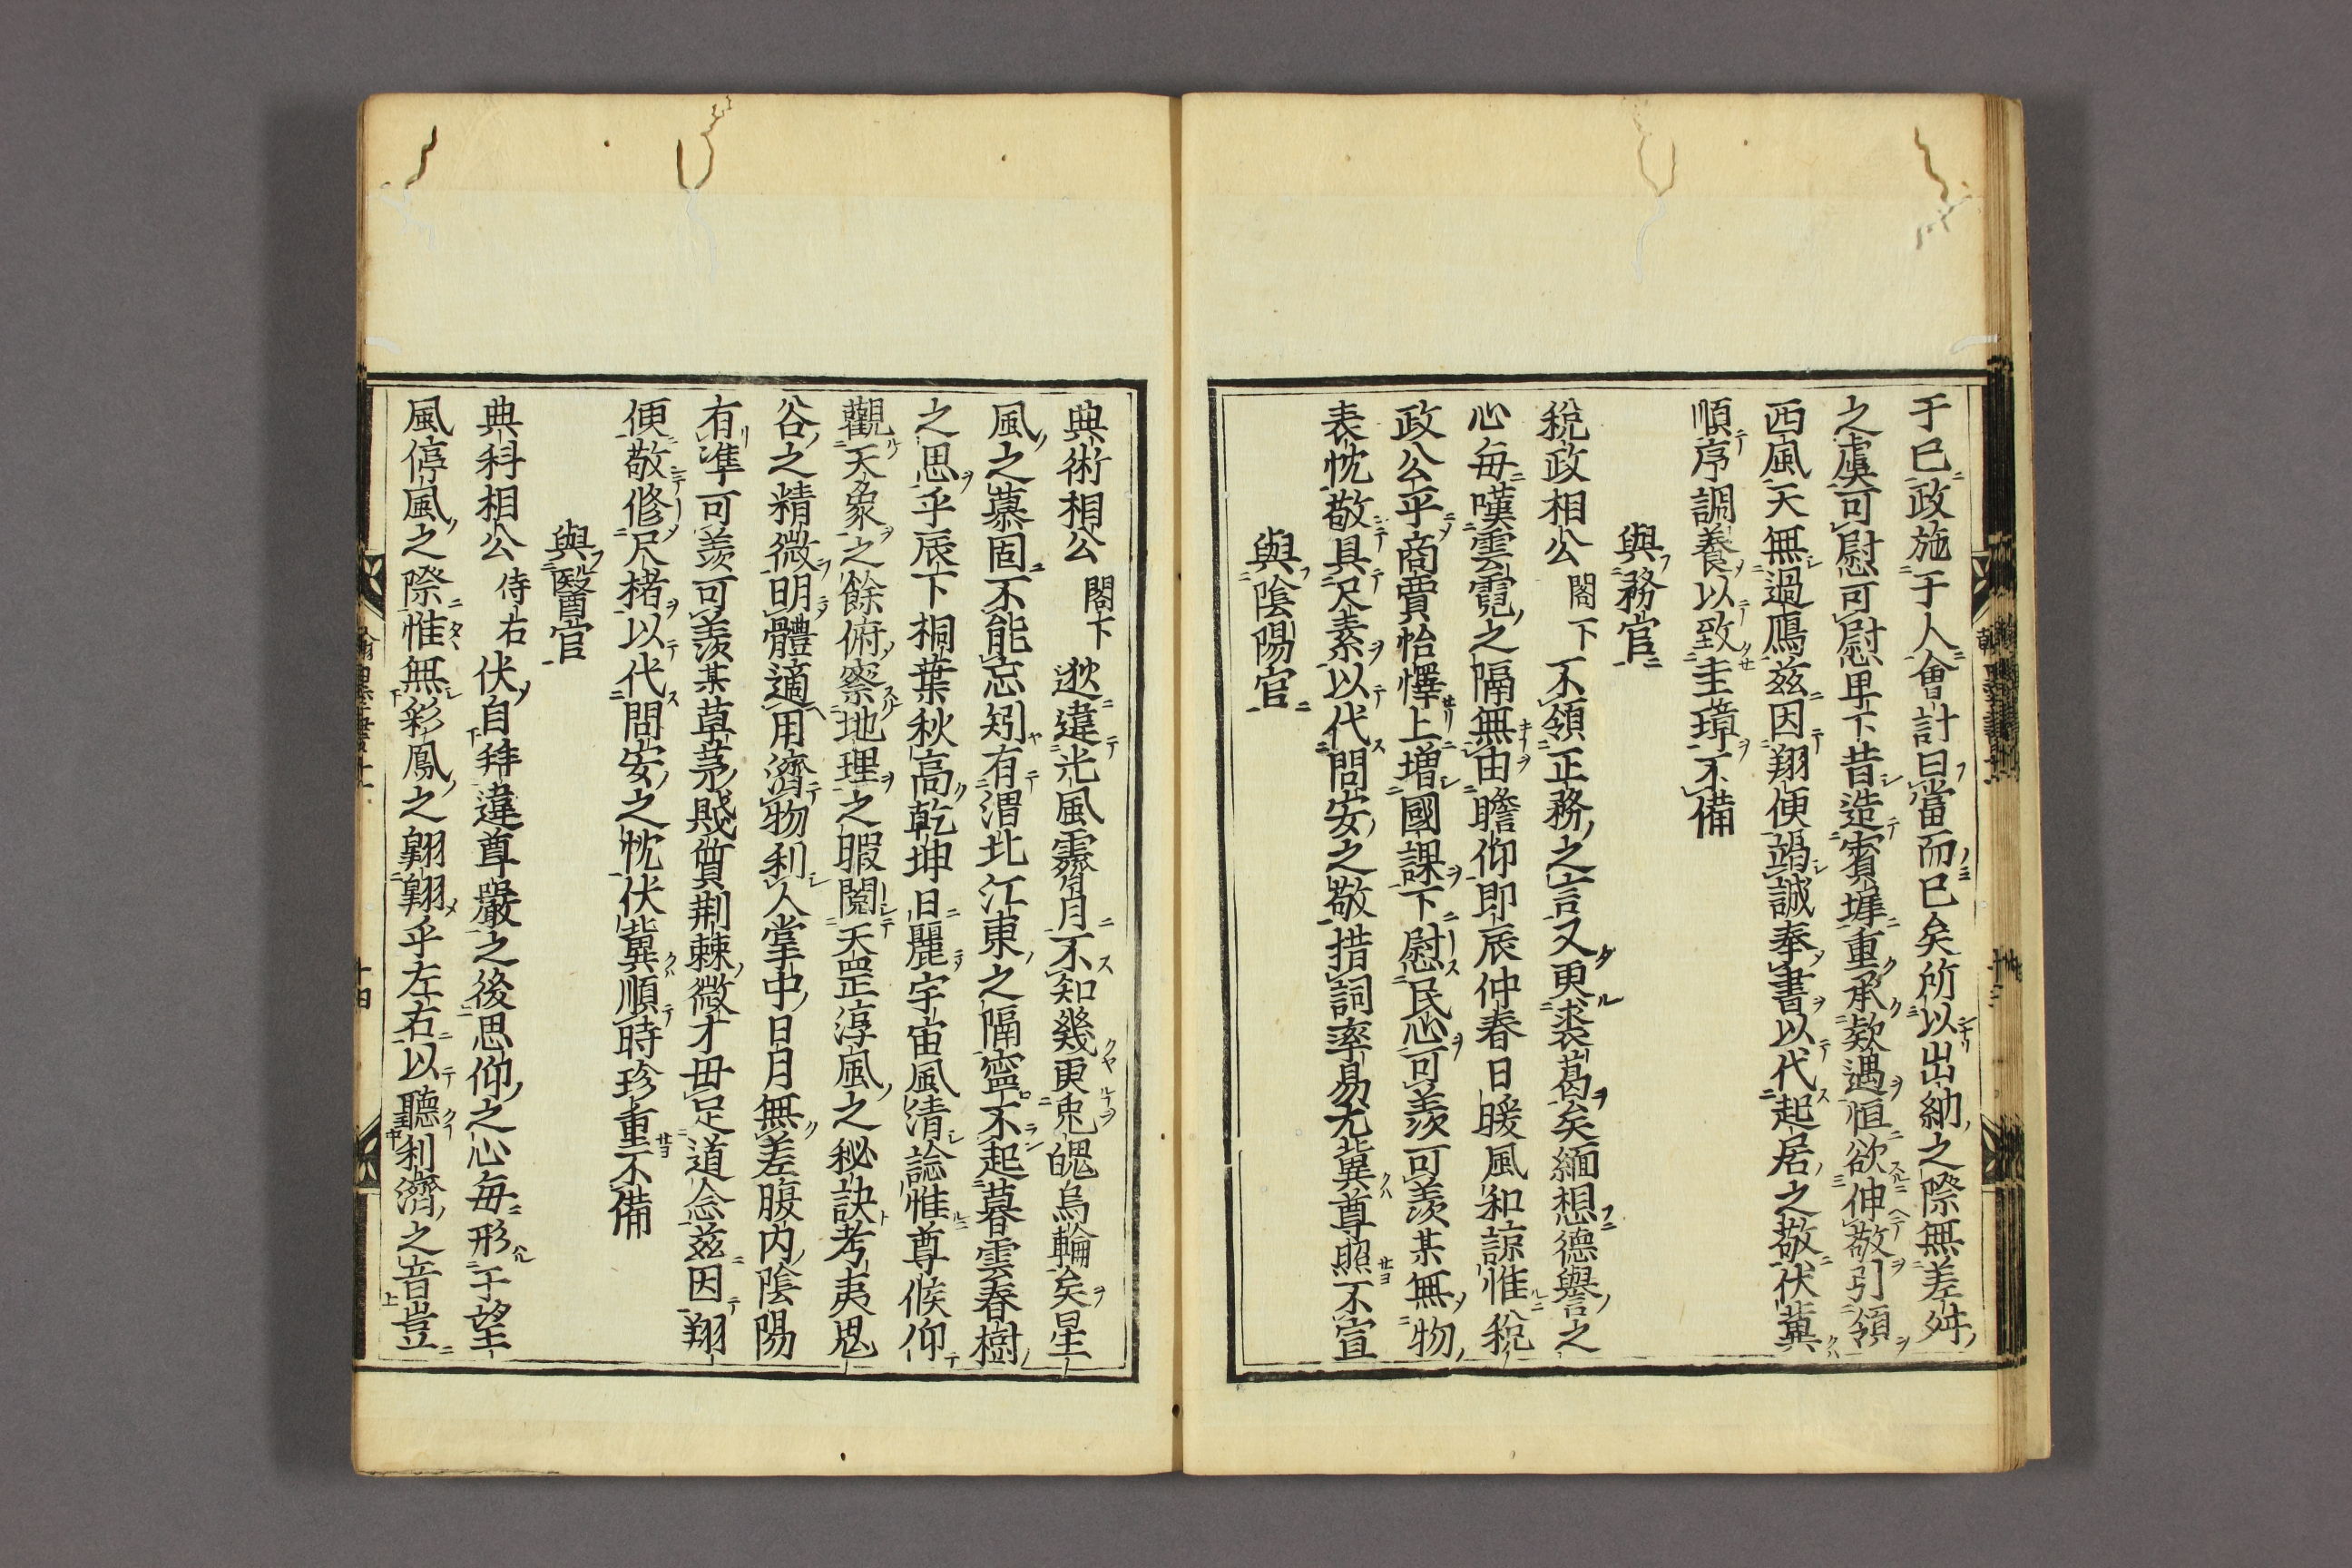 于已政施于人會計曰當而已矣所以出納之際無差舛
之虞可慰可慰卑下昔造賓墀重承欵遇恒欲伸敬引領
西風天無過鴈兹因翔便竭誠奉書以代起居之敬伏冀
順序調養以致圭璋不備
與務官
税政相公閣下不領正務之言又更裘葛矣緬想德譽之
心每嘆雲霓之隔無由瞻仰即辰仲春日暖風和諒惟税
政公平商賈怡懌上增國課下慰民心可羨可羨某無物
表忱敬具尺素以代問安之敬措詞率易尤冀尊照不宣
與陰陽官
典術相公閣下逖違光風霽月不知幾更兎魄烏輪矣星
風之慕固不能忘矧有渭北江東之隔寧不起暮雲春樹
之思乎辰下桐葉秋高乾坤日麗宇宙風清諗惟尊候仰
觀天象之餘俯察地理之暇閱天罡淳風之秘訣考夷思
谷之精微明體適用濟物利人掌中日月無差腹内陰陽
有準可羨可羨某草茅賤質荆棘微才毋足道念兹因翔
便敬修尺楮以代問安之忱伏冀順時珍重不備
與醫官
典科相公侍右伏自拜違尊嚴之後思仰之心每形于望
風停風之際惟無彩鳳之翱翱乎左右以聽利濟之音豈